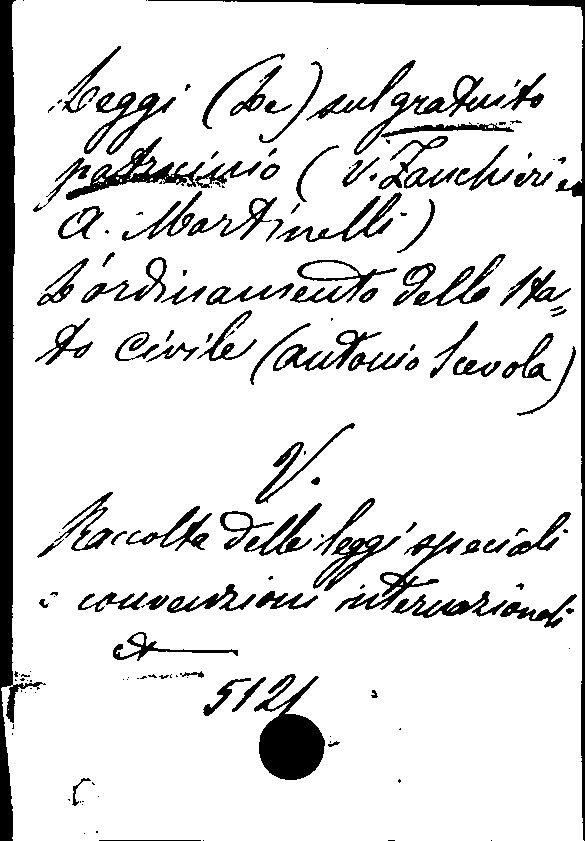 Leggi (Le) sul gratuito
patrocinio (V. Zanchieri e
A. Martinelli)
L'ordinamento dello Sta=
to civile (Antonio Scevola)
V.
Raccolta delle leggi speciali
e convenzioni internazionali
5121